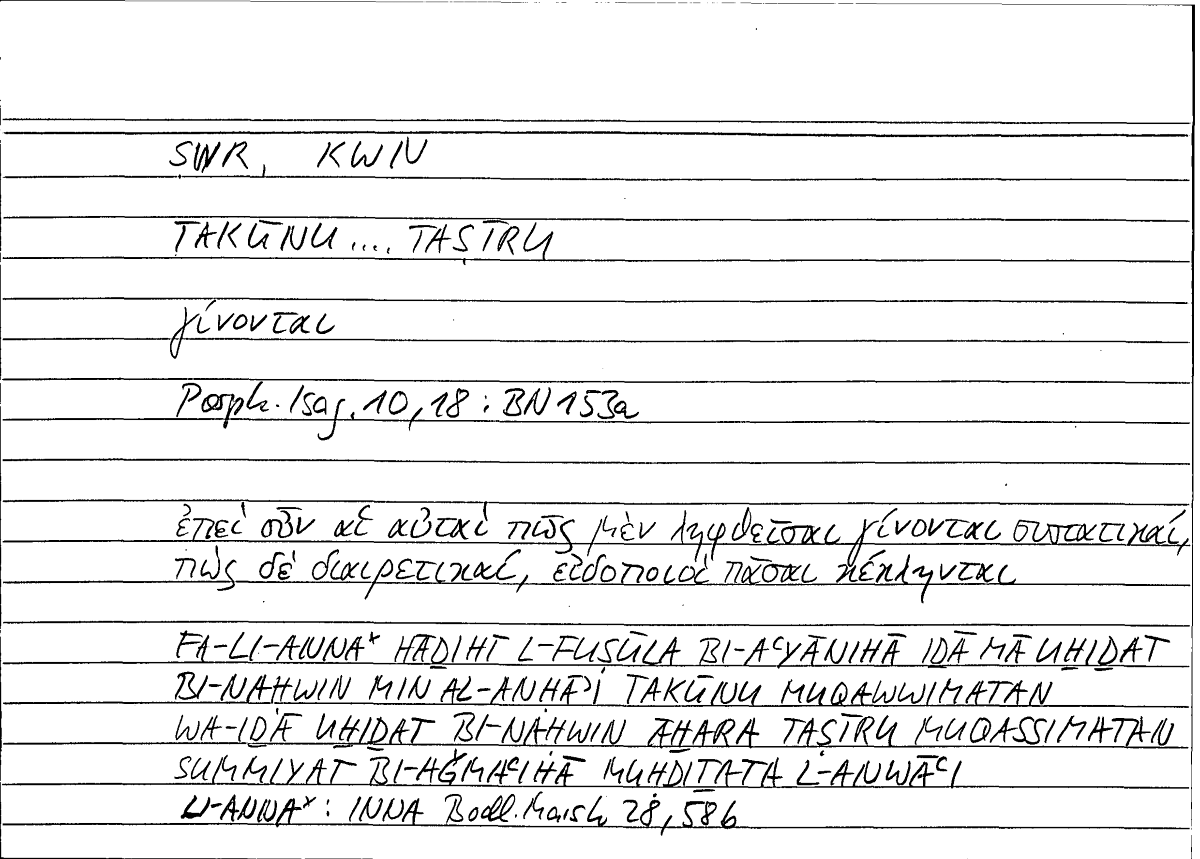 ṢWR, KWN
TAKŪNU .... TAṢĪRU
γίνονται
Porph. Isag. 10,18 : BN 153a
ἐπεὶ οὖν αἱ αὐταὶ πῶς μὲν ληφθεῖσαι γίνονται συστατικαί,
πὼς δὲ διαιρετικαί, εἰδοποιοὶ πᾶσαι κέκληνται
FA-LI-ANNAˣ HĀḎIHĪ L-FUṢŪLA BI-AʿYĀNIHĀ IḎĀ MĀ UḪIḎAT
BI-NAḤWIN MIN AL-ANḤĀʾI TAKŪNU MUQAWWIMATAN
WA-IḎĀ UḪIḎAT BI-NAḤWIN ĀḪARA TAṢĪRU MUQASSIMATAN
SUMMIYAT BI-AǦMAʿIHĀ MUḤDIṮATA L-ANWĀʿI
LI-ANNAˣ : INNA Bodl. Marsh 28, 58b